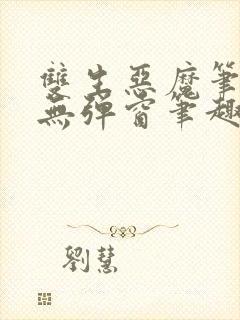 雙生惡魔筆
無彈窗筆趣
劉慧